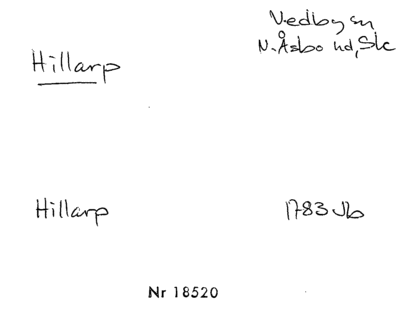 Vedby sn
Hillarp
N. Åsbo hd, Sk
Hillarp
1783 Jb
Nr 18520